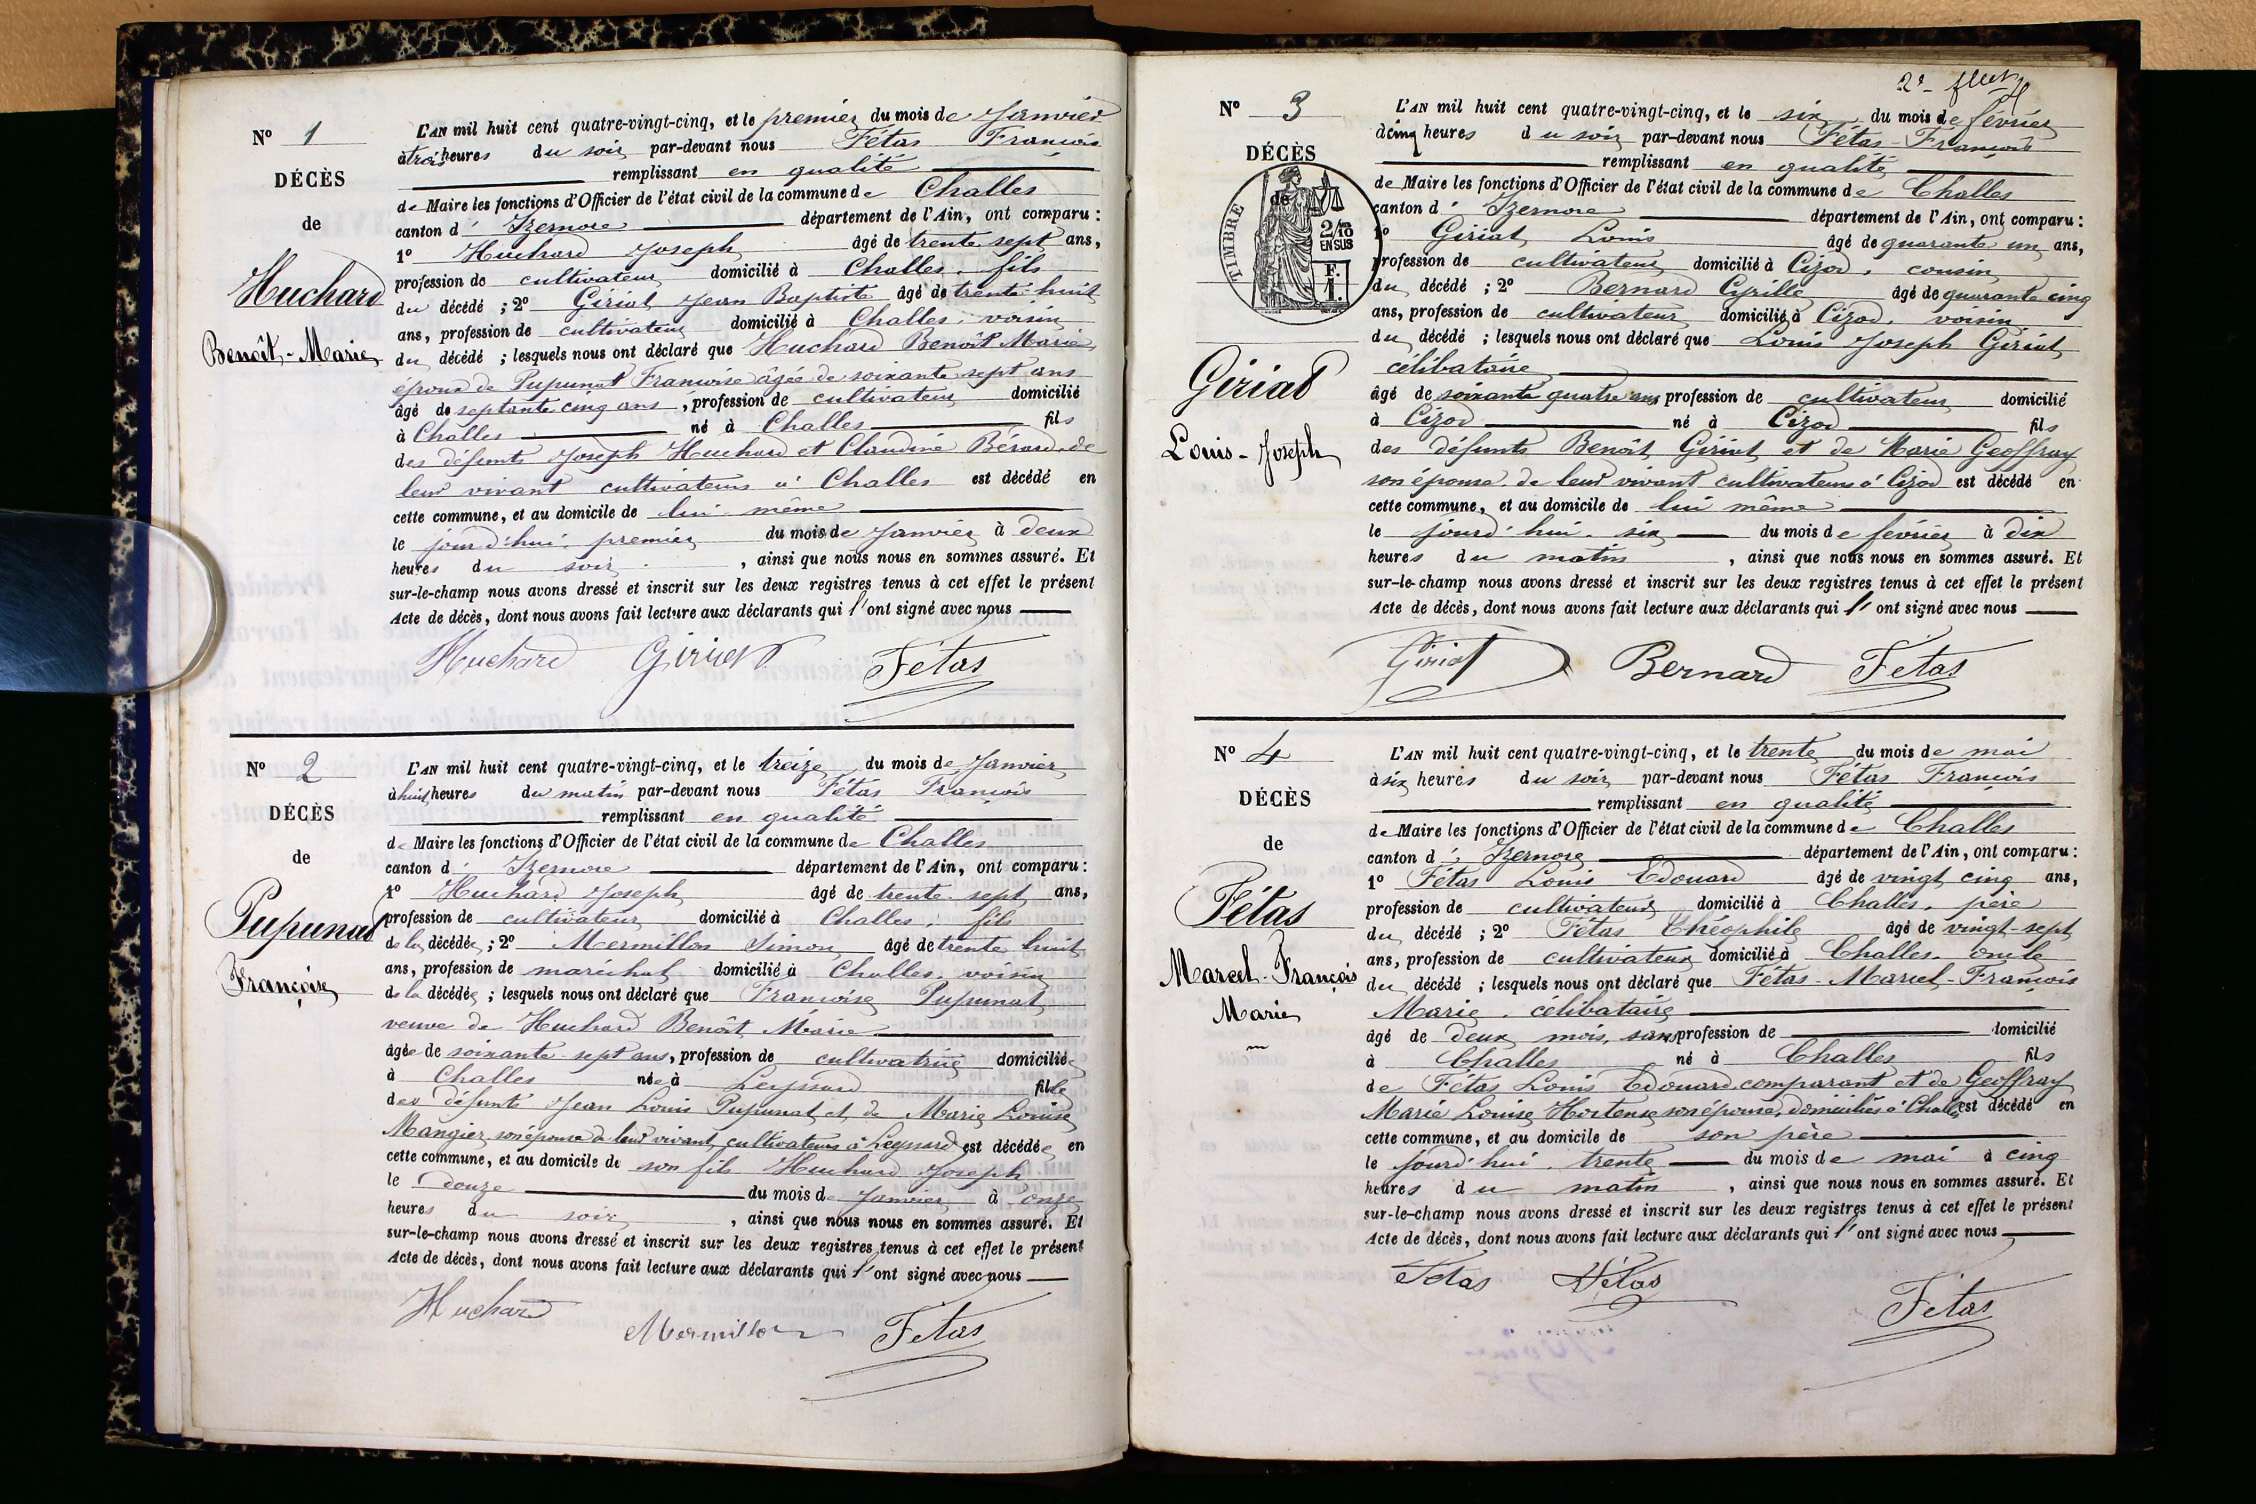 N° 1
DÉCÈS
de
Huchard
Benoît-Marie
L'AN mil huit cent quatre-vingt-cinq, et le premier du mois de Janvier
à trois heures du soir par-devant nous Fétas François
remplissant en qualité
de Maire les fonctions d'Officier de l'état civil de la commune de Challes
canton d' Izernore département de l'Ain, ont comparu :
1° Huchard Joseph âgé de trente sept ans,
profession de cultivateur domicilié à Challes, fils
du décédé ; 2° Giriat Jean Baptiste âgé de trente huit
ans, profession de cultivateur domicilié à Challes, voisin
du décédé ; lesquels nous ont déclaré que Huchard Benoît Marie
époux de Pupunat Francoise âgée de soixante sept ans
âgé de septante cinq ans, profession de cultivateur domicilié
à Challes né à Challes fils
des défunts Joseph Huchard et Claudine Bérard, de
leur vivant cultivateurs à Challes est décédé en
cette commune, et au domicile de lui même
le jourd'hui premier du mois de Janvier à deux
heures du soir, ainsi que nous nous en sommes assuré. Et
sur-le-champ nous avons dressé et inscrit sur les deux registres tenus à cet effet le présent
Acte de décès, dont nous avons fait lecture aux déclarants qui l'ont signé avec nous
Huchard Giriat Fétas
N° 2
DÉCÈS
de
Pupunat
Françoise
L'AN mil huit cent quatre-vingt-cinq, et le treize du mois de Janvier
à huit heures du matin par-devant nous Fétas François
remplissant en qualité
de Maire les fonctions d'Officier de l'état civil de la commune de Challes
canton d' Izernore département de l'Ain, ont comparu :
1° Huchard Joseph âgé de trente sept ans,
profession de cultivateur domicilié à Challes, fils
de la décédée ; 2° Mermillon Simon âgé de trente huit
ans, profession de maréchal domicilié à Challes, voisin
de la décédée ; lesquels nous ont déclaré que Francoise Pupunat
veuve de Huchard Benoît Marie
âgée de soixante sept ans, profession de cultivatrice domiciliée
à Challes née à Leyssard fille
des défunts Jean Louis Pupunat et de Marie Louise
Mangier son épouse de leur vivant cultivateurs à Leyssard est décédée en
cette commune, et au domicile de son fils Huchard Joseph
le Douze du mois de Janvier à onze
heures du soir, ainsi que nous nous en sommes assuré. Et
sur-le-champ nous avons dressé et inscrit sur les deux registres tenus à cet effet le présent
Acte de décès, dont nous avons fait lecture aux déclarants qui l'ont signé avec nous
Huchard Mermillon Fétas
2e fllet
N° 3
DÉCÈS
de
TIMBRE
2/10 EN SUS
F. 1.
Giriat
Louis-Joseph
L'AN mil huit cent quatre-vingt-cinq, et le six du mois de février
à cinq heures du soir par-devant nous Fétas François
remplissant en qualité
de Maire les fonctions d'Officier de l'état civil de la commune de Challes
canton d' Izernore département de l'Ain, ont comparu :
1° Giriat Louis âgé de quarante un ans,
profession de cultivateur domicilié à Cizod, cousin
du décédé ; 2° Bernard Cyrille âgé de quarante cinq
ans, profession de cultivateur domicilié à Cizod, voisin
du décédé ; lesquels nous ont déclaré que Louis Joseph Giriat
célibataire
âgé de soixante quatre ans profession de cultivateur domicilié
à Cizod né à Cizod fils
des défunts Benoît Giriat et de Marie Geoffray
son épouse de leur vivant cultivateurs à Cizod est décédé en
cette commune, et au domicile de lui même
le jourd'hui six du mois de février à dix
heures du matin, ainsi que nous nous en sommes assuré. Et
sur-le-champ nous avons dressé et inscrit sur les deux registres tenus à cet effet le présent
Acte de décès, dont nous avons fait lecture aux déclarants qui l'ont signé avec nous
Giriat Bernard Fétas
N° 4
DÉCÈS
de
Fétas
Marcel-François
Marie
L'AN mil huit cent quatre-vingt-cinq, et le trente du mois de mai
à six heures du soir par-devant nous Fétas François
remplissant en qualité
de Maire les fonctions d'Officier de l'état civil de la commune de Challes
canton d' Izernore département de l'Ain, ont comparu :
1° Fétas Louis Edouard âgé de vingt cinq ans,
profession de cultivateur domicilié à Challes, père
du décédé ; 2° Fétas Théophile âgé de vingt-sept
ans, profession de cultivateur domicilié à Challes, oncle
du décédé ; lesquels nous ont déclaré que Fétas-Marcel-François
Marie, célibataire
âgé de deux mois, sans profession de domicilié
à Challes né à Challes fils
de Fétas Louis Edouard comparant et de Geoffray
Marie Louise Hortense son épouse, domiciliés à Challes est décédé en
cette commune, et au domicile de son père
le jourd'hui trente du mois de mai à cinq
heures du matin, ainsi que nous nous en sommes assuré. Et
sur-le-champ nous avons dressé et inscrit sur les deux registres tenus à cet effet le présent
Acte de décès, dont nous avons fait lecture aux déclarants qui l'ont signé avec nous
Fétas Fétas Fétas